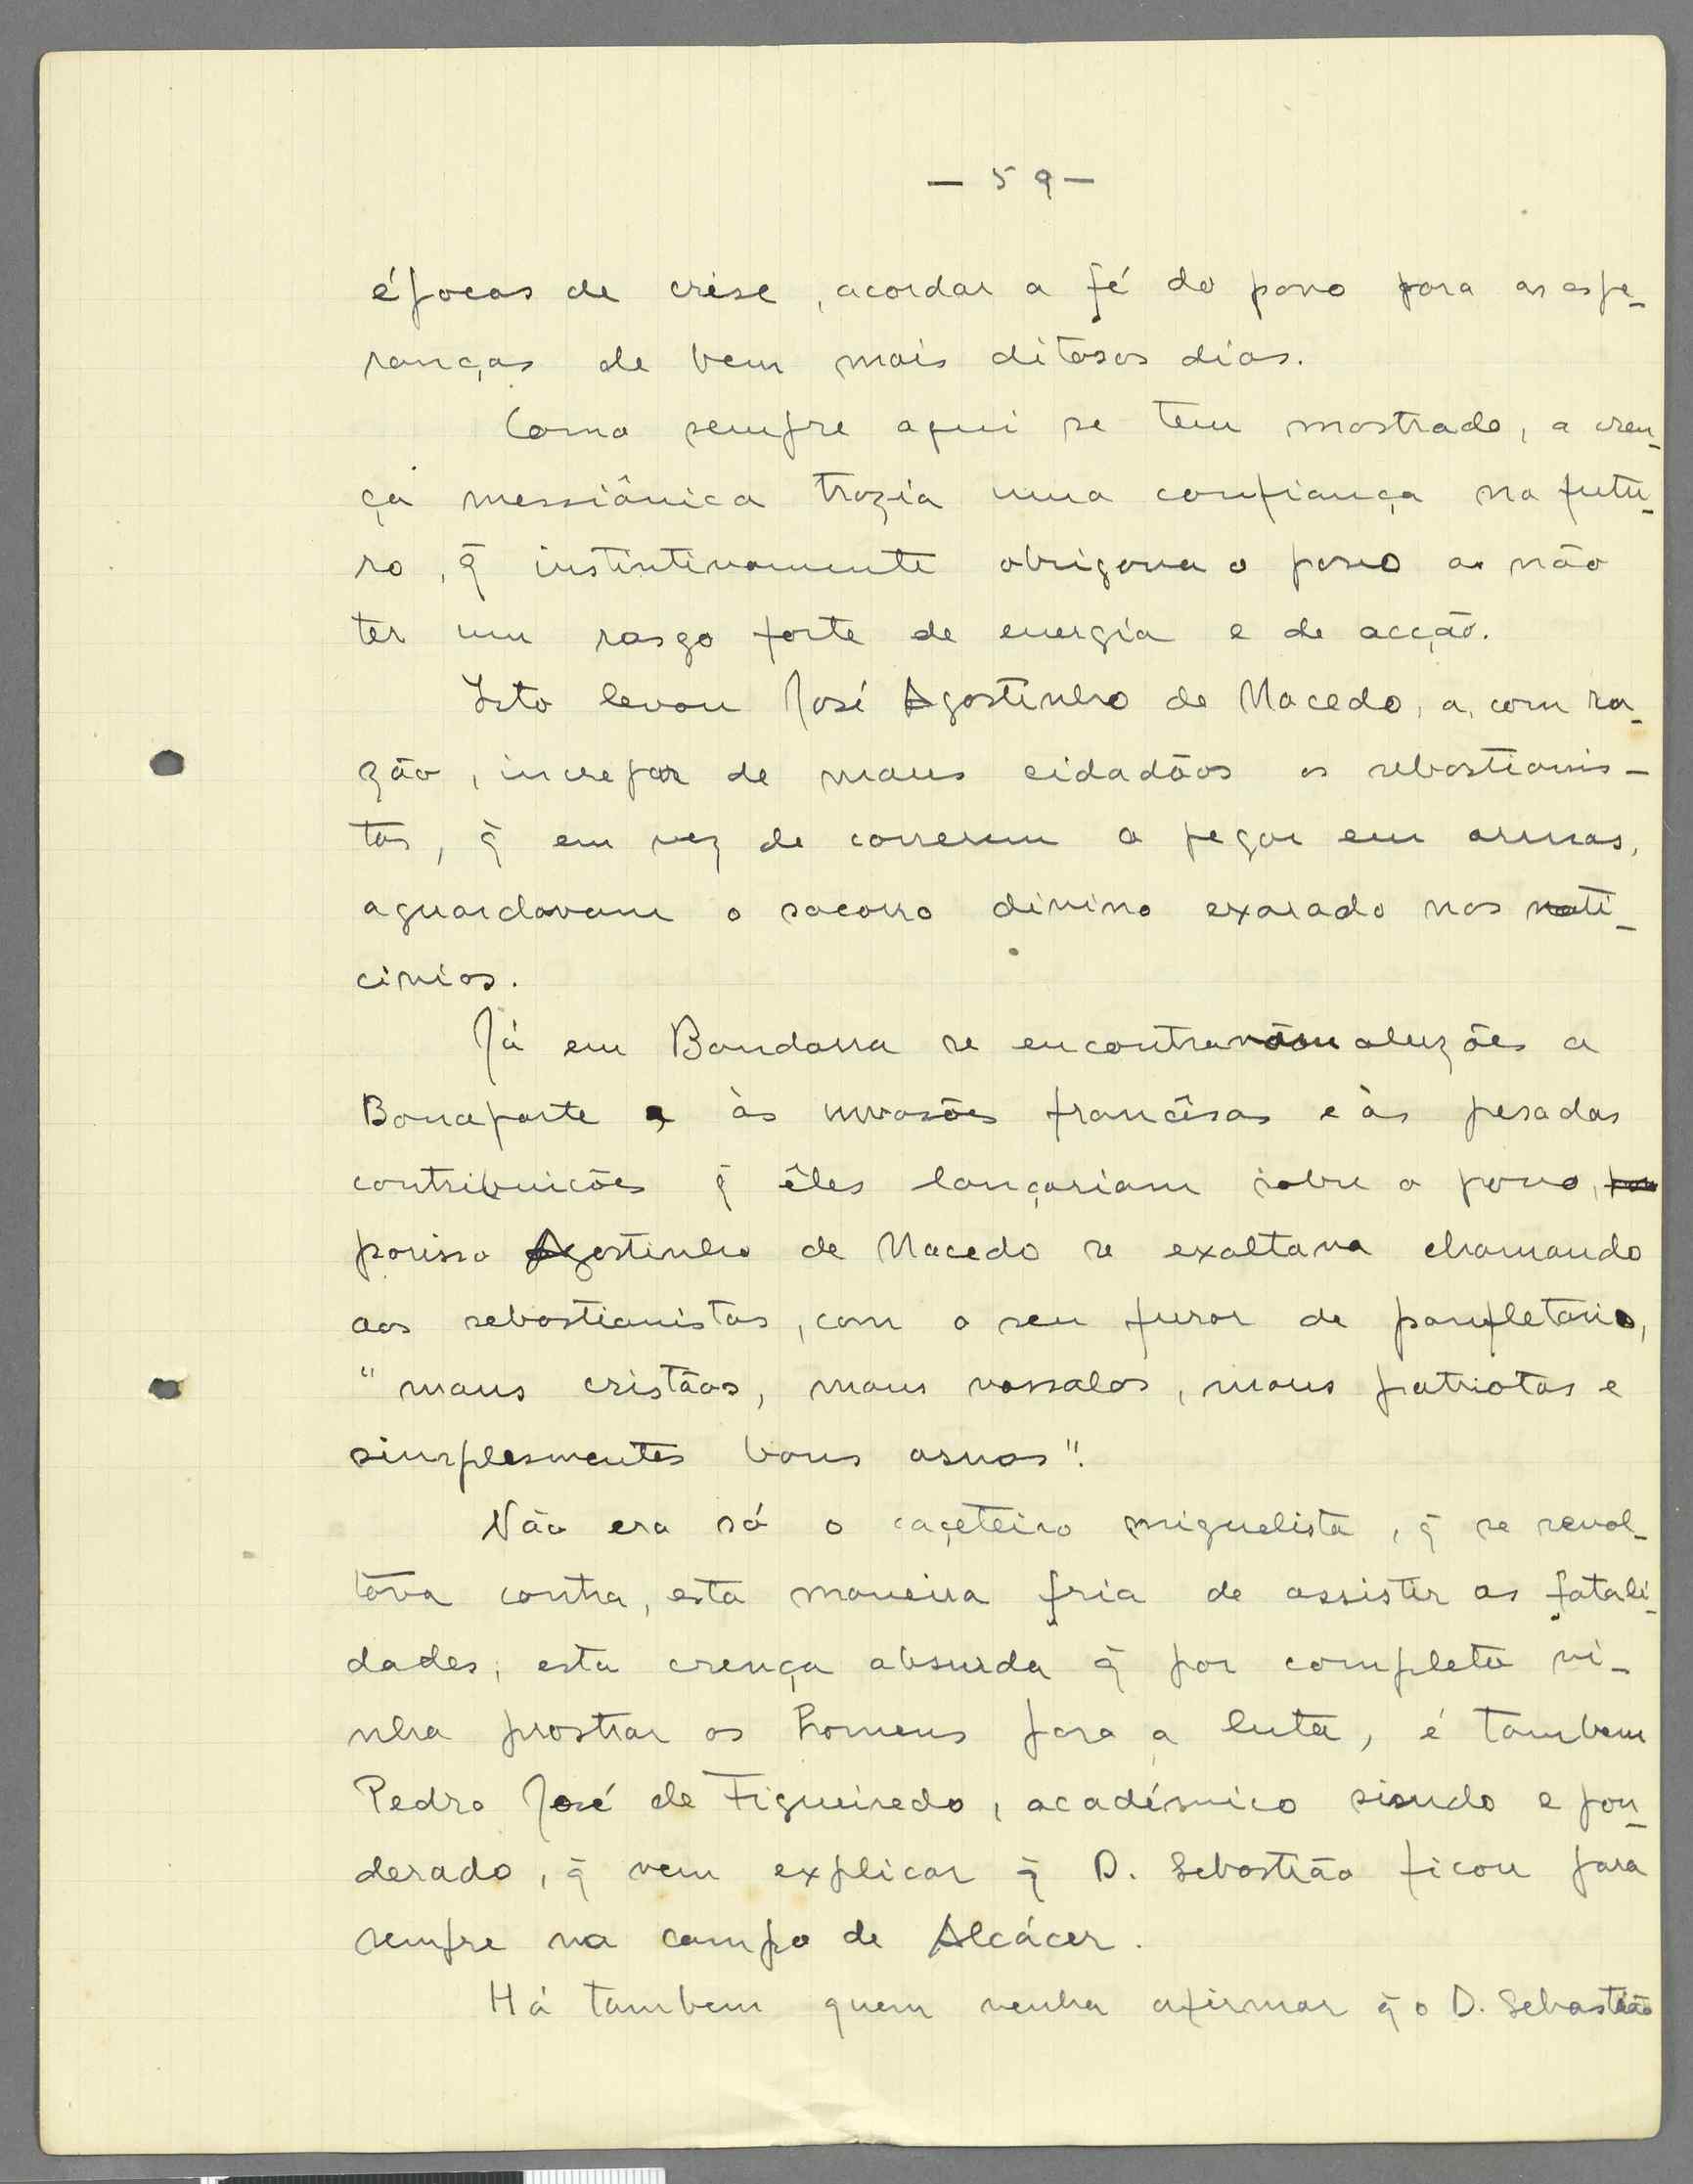 — 59 —
épocas de crise, acordar a fé do povo para as espe-
ranças de bem mais ditosos dias.
Como sempre aqui se tem mostrado, a cren-
ça messiânica trazia uma confiança no futu-
ro, q̃ instintivamente obrigava o povo a não
ter um rasgo forte de energia e de acção.
Isto levou José Agostinho de Macedo, a, com ra-
zão, increpar de maus cidadãos os sebastianis-
tas, q̃ em vez de correrem a pegar em armas,
aguardavam o socorro divino exarado nos vati-
cinios.
Já em Bandarra se encontravam aluzões a
Bonaparte e às invasões francêsas e às pesadas
contribuicões q̃ êles lançariam sobre o povo,
porisso Agostinho de Macedo se exaltava chamando
aos sebastianistas, com o seu furor de panfletario,
"maus cristãos, maus vassalos, maus patriotas e
simplesmentes bons asnos".
Não era só o caceteiro miguelista, q̃ se revol-
tava contra, esta maneira fria de assistir as fatali-
dades, esta crença absurda q̃ por completo vi-
nha prostrar os homens para a luta, é tambem
Pedro José de Figueiredo, académico sisudo e pon-
derado, q̃ vem explicar q̃ D. Sebastião ficou para
sempre no campo de Alcácer.
Há tambem quem venha afirmar q̃ o D. Sebastião